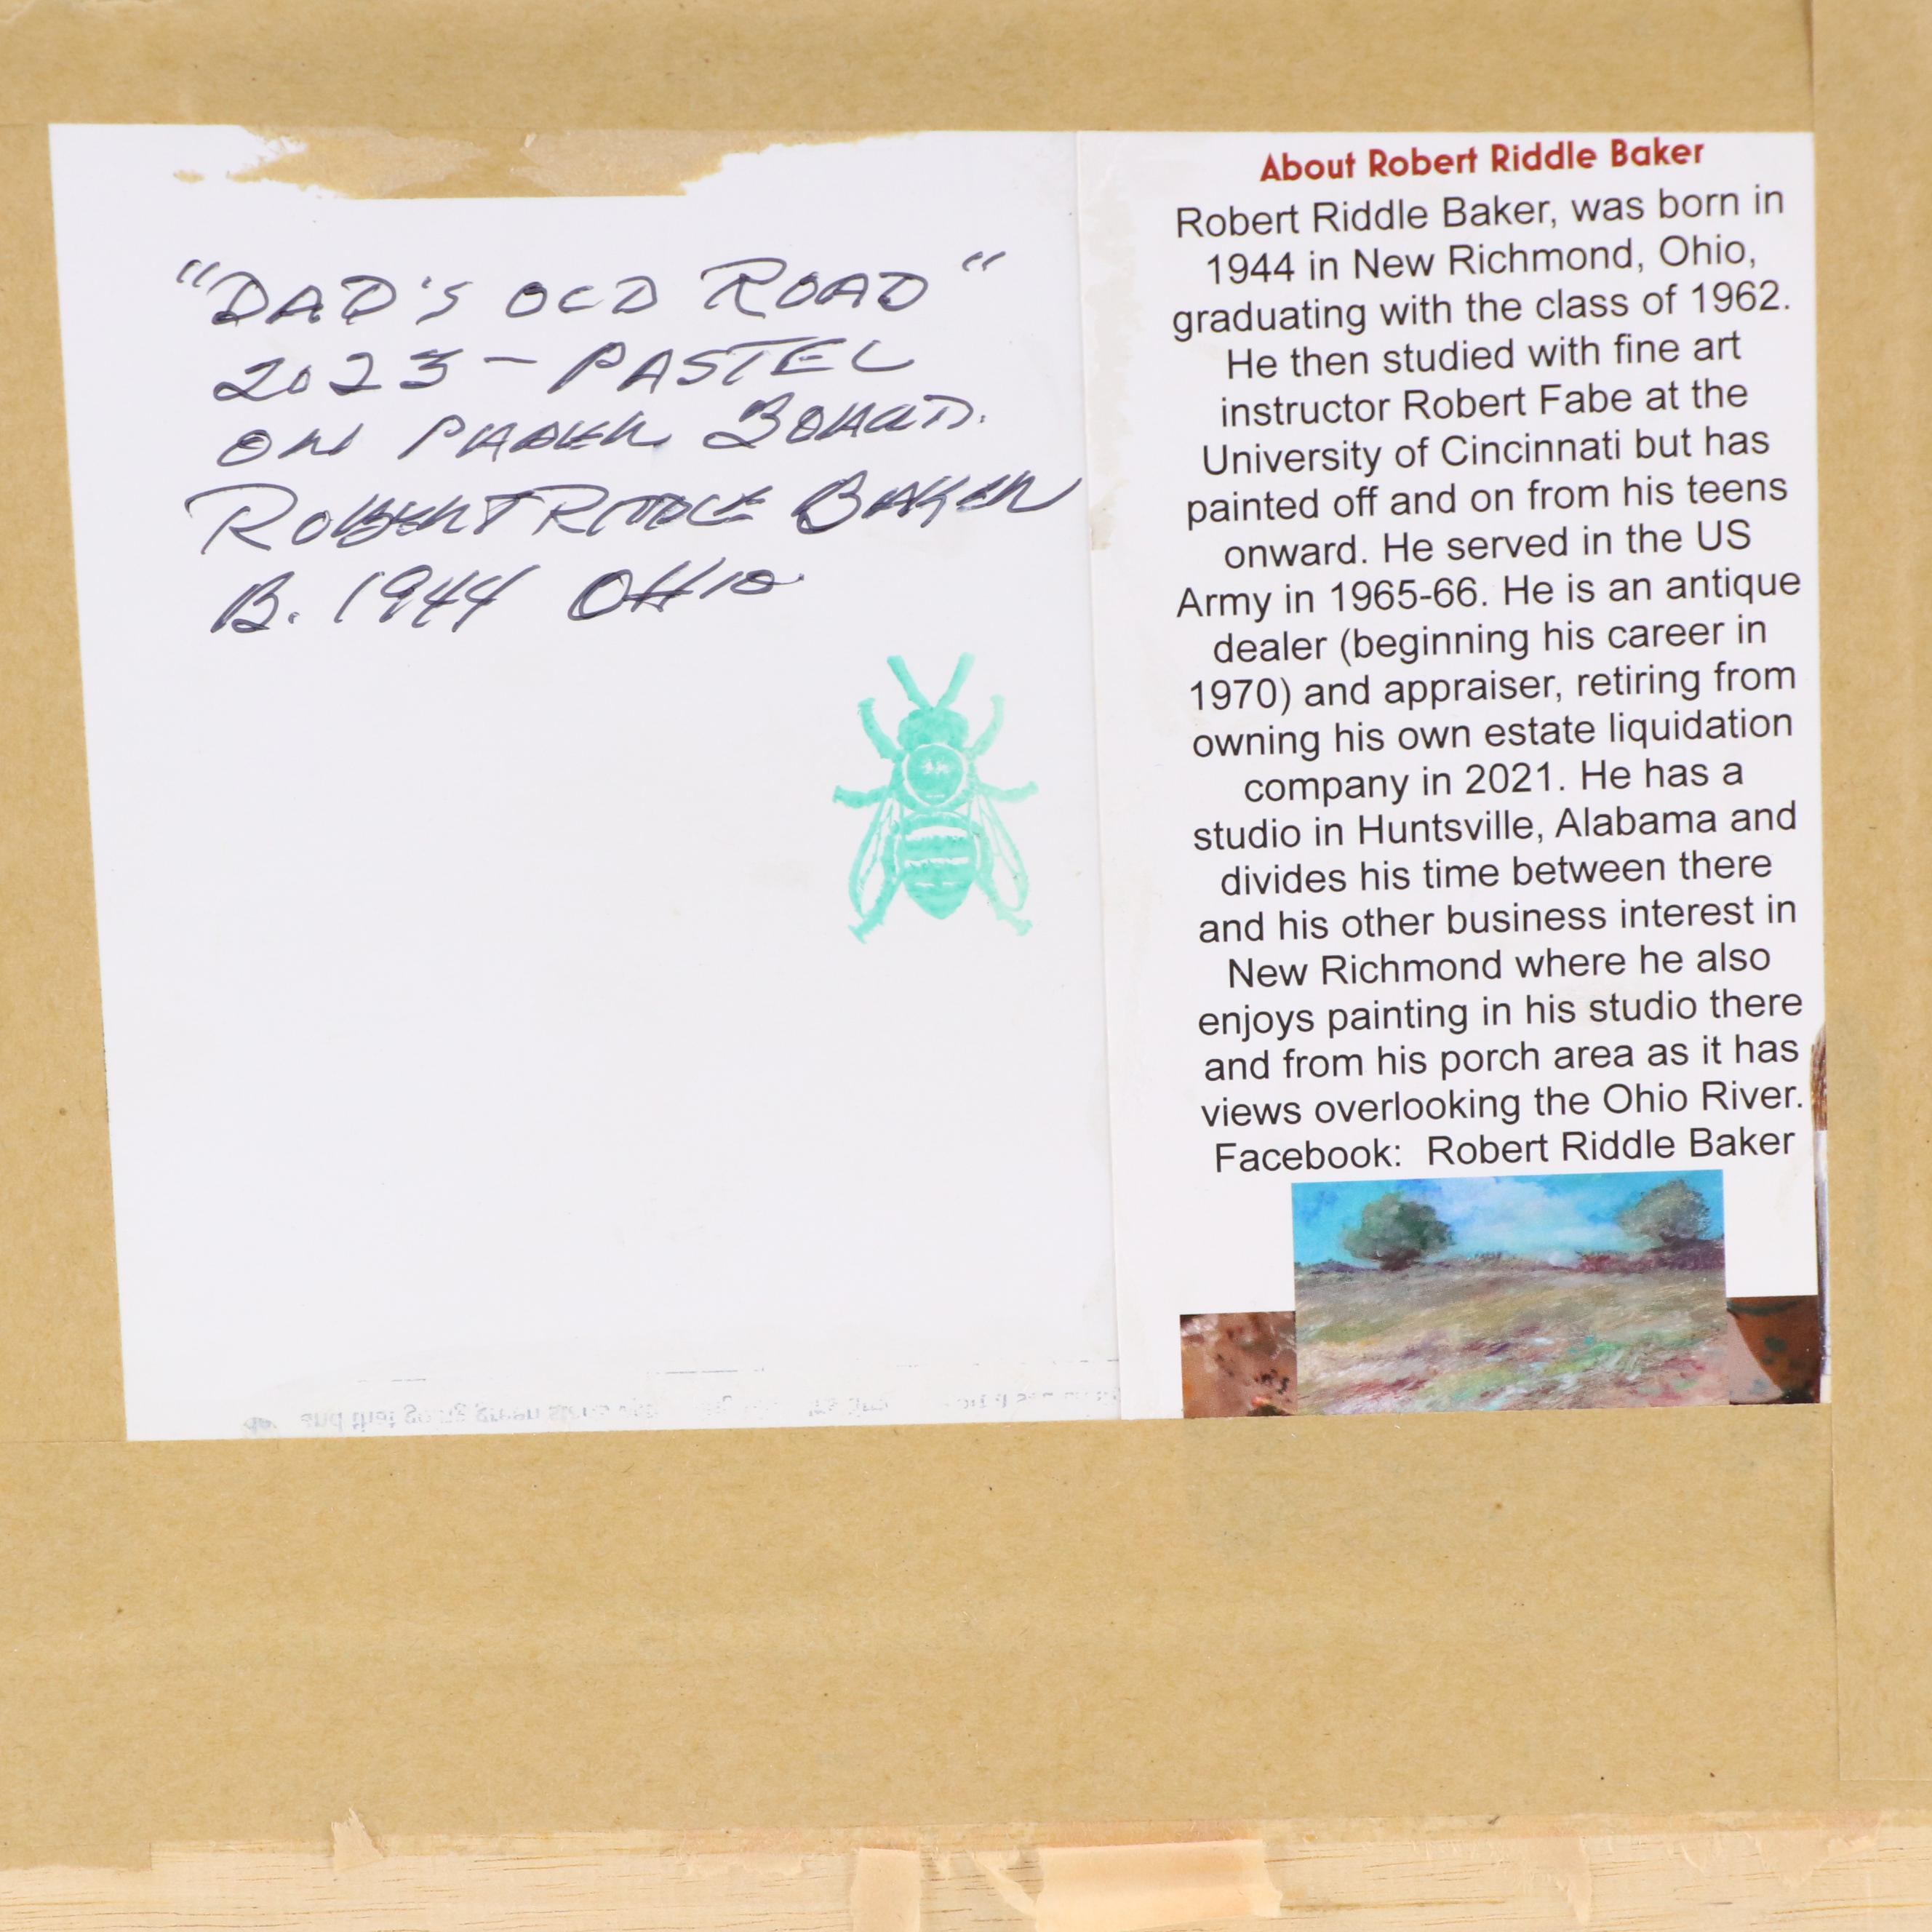 "DAD'S OLD ROAD"
2023 - PASTEL
ON PAPER BOARD.
ROBERT RIDDLE BAKER
B. 1944 OHIO
About Robert Riddle Baker
Robert Riddle Baker, was born in
1944 in New Richmond, Ohio,
graduating with the class of 1962.
He then studied with fine art
instructor Robert Fabe at the
University of Cincinnati but has
painted off and on from his teens
onward. He served in the US
Army in 1965-66. He is an antique
dealer (beginning his career in
1970) and appraiser, retiring from
owning his own estate liquidation
company in 2021. He has a
studio in Huntsville, Alabama and
divides his time between there
and his other business interest in
New Richmond where he also
enjoys painting in his studio there
and from his porch area as it has
views overlooking the Ohio River.
Facebook: Robert Riddle Baker